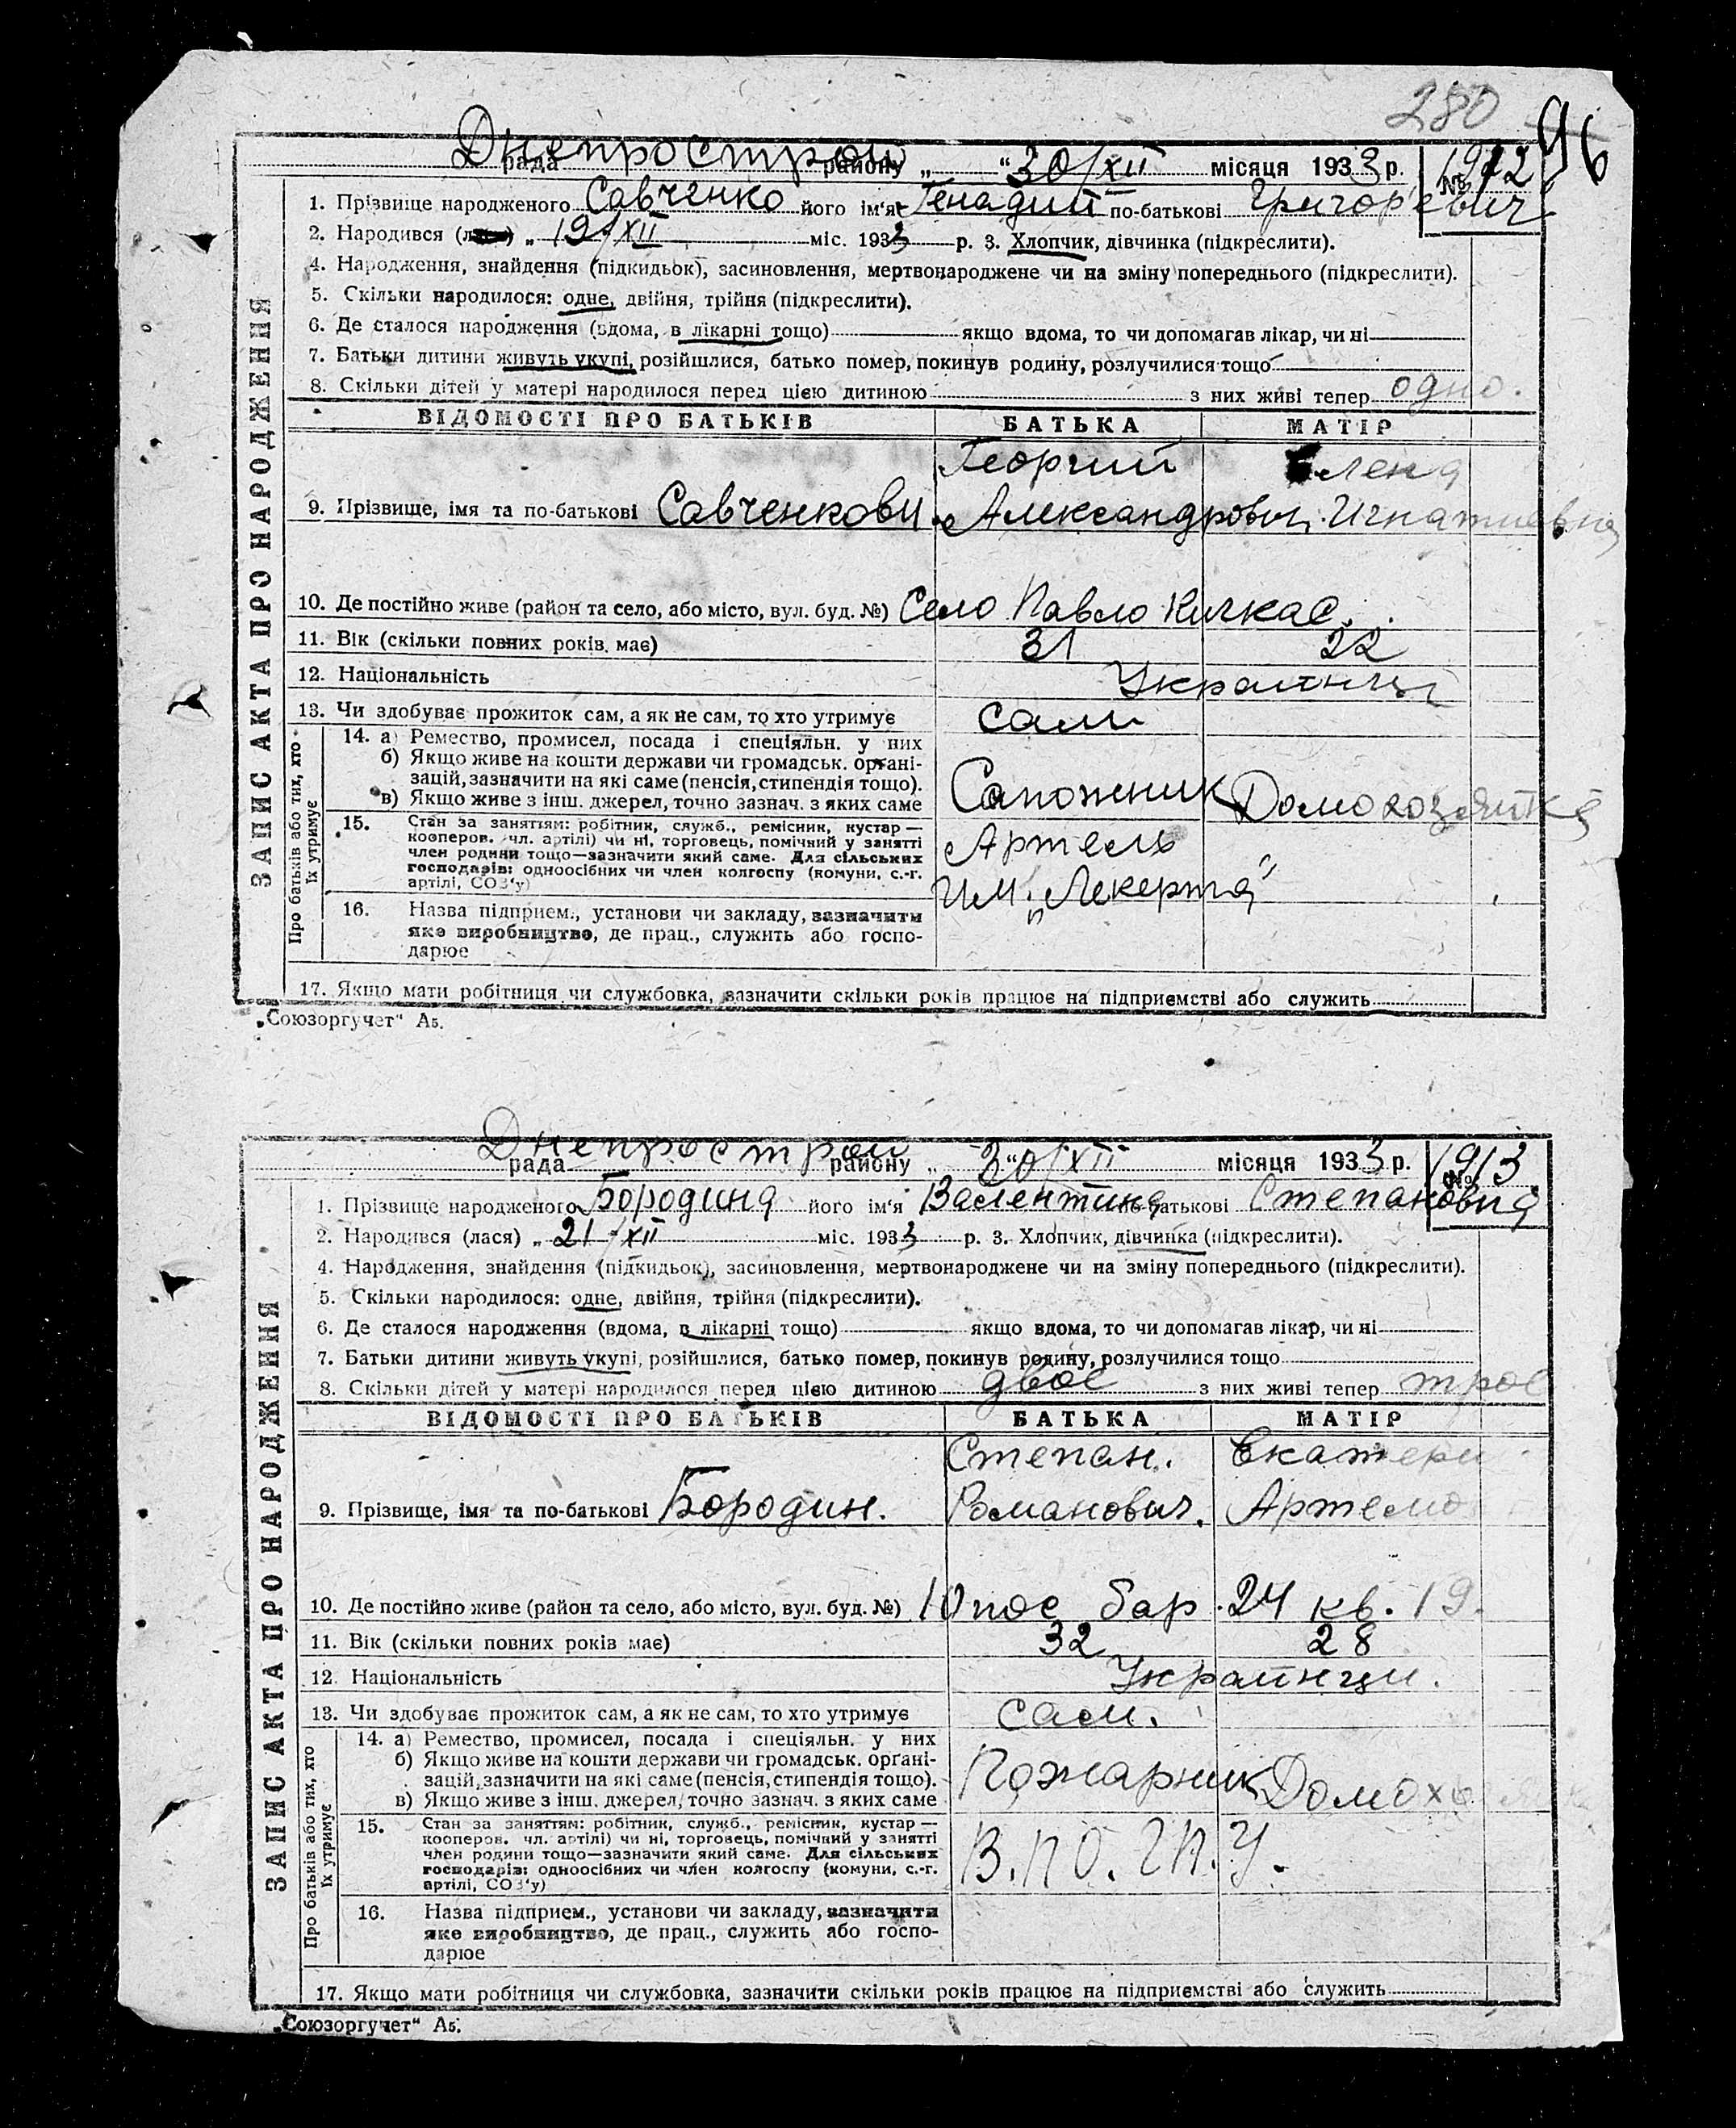 280 96
Днепрострой
рада району „ “ 30/XII місяця 1933 р. № 1912
1. Прізвище народженого Савченко його ім'я Генадий по-батькові Григорьевич
2. Народився (лася) „ 19/XII міс. 1933 р. 3. Хлопчик, дівчинка (підкреслити).
4. Народження, знайдення (підкидьок), засиновлення, мертвонароджене чи на зміну попереднього (підкреслити).
5. Скільки народилося: одне, двійня, трійня (підкреслити).
6. Де сталося народження (вдома, в лікарні тощо) якщо вдома, то чи допомагав лікар, чи ні
7. Батьки дитини живуть укупі, розійшлися, батько помер, покинув родину, розлучилися тощо
8. Скільки дітей у матері народилося перед цією дитиною з них живі тепер одно.
ВІДОМОСТІ ПРО БАТЬКІВ БАТЬКА МАТІР
Георгий Елена
9. Прізвище, імя та по-батькові Савченкови. Александрович. Игнатиевна
10. Де постійно живе (район та село, або місто, вул. буд. №) Село Павло Кичкас.
11. Вік (скільки повних років має) 31 22
12. Національність Украинци
13. Чи здобуває прожиток сам, а як не сам, то хто утримує сами
14. а) Ремество, промисел, посада і спеціяльн. у них
б) Якщо живе на кошти держави чи громадськ. органі-
зацій, зазначити на які саме (пенсія, стипендія тощо).
в) Якщо живе з інш. джерел, точно зазнач. з яких саме
Сапожник Домохозяйка
15. Стан за заняттям: робітник, служб., ремісник, кустар —
кооперов. чл. артілі) чи ні, торговець, помічний у занятті
член родини тощо—зазначити який саме. Для сільських
господарів: одноосібних чи член колгоспу (комуни, с.-г.
артілі, СОЗ'у)
Артель
им. „Лекерта“
16. Назва підприєм., установи чи закладу, зазначити
яке виробництво, де прац., служить або госпо-
дарює
17. Якщо мати робітниця чи службовка, зазначити скільки років працює на підприємстві або служить
ЗАПИС АКТА ПРО НАРОДЖЕННЯ
Про батьків або тих, хто
їх утримує
„Союзоргучет“ А5.
Днепрострой
рада району „ “ 30/XII місяця 1933 р. № 1913
1. Прізвище народженого Бородина його ім'я Валентина по-батькові Степановна
2. Народився (лася) „ 21/XII міс. 1933 р. 3. Хлопчик, дівчинка (підкреслити).
4. Народження, знайдення (підкидьок), засиновлення, мертвонароджене чи на зміну попереднього (підкреслити).
5. Скільки народилося: одне, двійня, трійня (підкреслити).
6. Де сталося народження (вдома, в лікарні тощо) якщо вдома, то чи допомагав лікар, чи ні
7. Батьки дитини живуть укупі, розійшлися, батько помер, покинув родину, розлучилися тощо
8. Скільки дітей у матері народилося перед цією дитиною двое з них живі тепер трое
ВІДОМОСТІ ПРО БАТЬКІВ БАТЬКА МАТІР
Степан. Екатери
9. Прізвище, імя та по-батькові Бородин. Романович. Артемо
10. Де постійно живе (район та село, або місто, вул. буд. №) 10 пос бар. 24 кв. 19.
11. Вік (скільки повних років має) 32 28
12. Національність Украинци.
13. Чи здобуває прожиток сам, а як не сам, то хто утримує сам.
14. а) Ремество, промисел, посада і спеціяльн. у них
б) Якщо живе на кошти держави чи громадськ. органі-
зацій, зазначити на які саме (пенсія, стипендія тощо).
в) Якщо живе з інш. джерел, точно зазнач. з яких саме
Пожарник Домохозяйка
15. Стан за заняттям: робітник, служб., ремісник, кустар —
кооперов. чл. артілі) чи ні, торговець, помічний у занятті
член родини тощо—зазначити який саме. Для сільських
господарів: одноосібних чи член колгоспу (комуни, с.-г.
артілі, СОЗ'у)
В.ПО.ГП.У.
16. Назва підприєм., установи чи закладу, зазначити
яке виробництво, де прац., служить або госпо-
дарює
17. Якщо мати робітниця чи службовка, зазначити скільки років працює на підприємстві або служить
ЗАПИС АКТА ПРО НАРОДЖЕННЯ
Про батьків або тих, хто
їх утримує
„Союзоргучет“ А5.